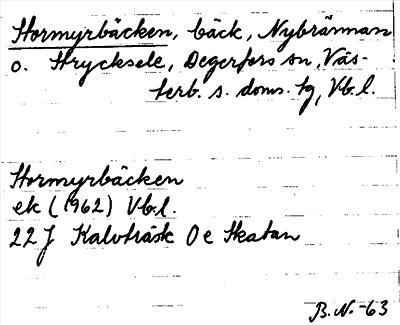 Stormyrbäcken, bäck, Nybrännan
o. Strycksele, Degerfors sn, Väs-
terb. s. doms. tg, Vb. l.
Stormyrbäcken
ek (1962) Vb. l.
22J Kalvträsk 0e Skatan
B.N.-63